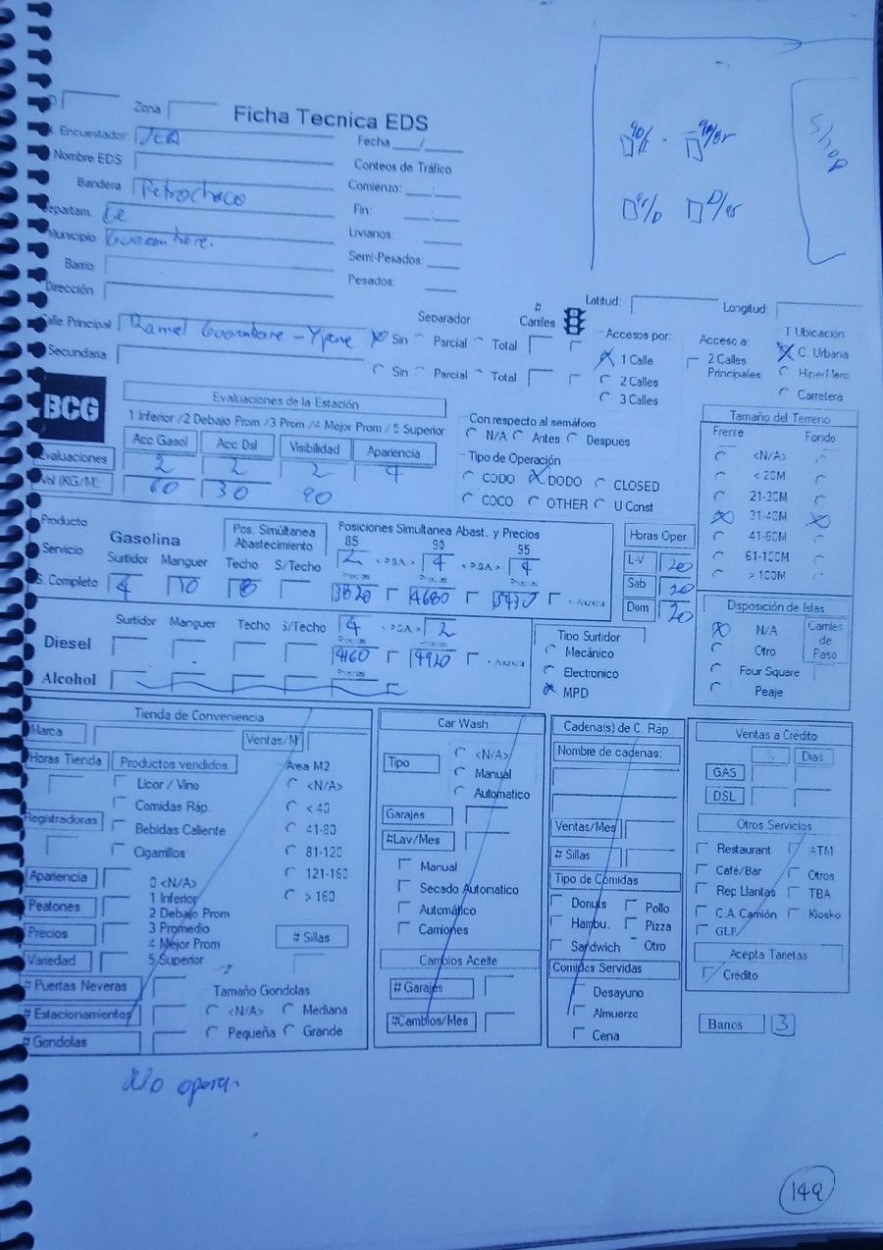 Zona Ficha Tecnica EDS
Encuestador JEA Fecha __/__
Nombre EDS Conteos de Tráfico
Bandera Petrochaco Comienzo:
Departam. Fin:
Municipio Livianos:
Barrio Semi-Pesados:
Dirección Pesados:
Shop
Calle Principal Ramal Guarambare - Ypane
Secundaria
Separador
Sin Parcial Total
Sin Parcial Total
# Carriles
Latitud: Longitud:
Accesos por:
1 Calle
2 Calles
3 Calles
Acceso a:
2 Calles Principales
T Ubicación
C. Urbana
HiperMerc
Carretera
BCG
Evaluaciones de la Estación
1 Inferior /2 Debajo Prom /3 Prom /4 Mejor Prom / 5 Superior
Acc Gasol Acc Dsl Visibilidad Apariencia
Evaluaciones 2 2 2 4
Vol (KG/M): 60 30 90
Con respecto al semáforo
N/A Antes Despues
Tipo de Operación
CODO DODO CLOSED
COCO OTHER U Const
Tamaño del Terreno
Frente Fondo
<N/A>
< 20M
21-30M
31-40M
41-60M
61-100M
> 100M
Producto Gasolina
Servicio Surtidor Manguer
Pos. Simúltanea Abastecimiento
Techo S/Techo
Posiciones Simultanea Abast. y Precios
85
95
2 4 4
S. Completo 4 10 8 3820 4680 5430
Horas Oper
L-V 20
Sab 20
Dom 20
Surtidor Manguer Techo S/Techo 4 2
Diesel 4160 4920
Alcohol
Tipo Surtidor
Mecánico
Electronico
MPD
Disposición de Islas
N/A
Otro
Four Square
Peaje
Carriles de Paso
Tienda de Conveniencia
Marca Ventas/M
Horas Tienda Productos vendidos Area M2
Licor / Vino <N/A>
Comidas Ráp. < 40
Registradoras Bebidas Caliente 41-80
Cigarrillos 81-120
Apariencia 0 <N/A> 121-160
1 Inferior > 160
Peatones 2 Debajo Prom
Precios 3 Promedio # Sillas
4 Mejor Prom
Variedad 5 Superior
# Puertas Neveras Tamaño Gondolas
# Estacionamientos <N/A> Mediana
# Gondolas Pequeña Grande
Car Wash
Tipo
<N/A>
Manual
Automatico
Garajes
#Lav/Mes
Manual
Secado Automatico
Automático
Camiones
Cambios Aceite
# Garajes
#Cambios/Mes
Cadena(s) de C. Ráp.
Nombre de cadenas:
Ventas/Mes
# Sillas
Tipo de Comidas
Donuts Pollo
Hambu. Pizza
Sandwich Otro
Comidas Servidas
Desayuno
Almuerzo
Cena
Ventas a Crédito
% Dias
GAS
DSL
Otros Servicios
Restaurant ATM
Café/Bar Otros
Rep Llantas TBA
C.A. Camión Kiosko
GLP
Acepta Tarjetas
Crédito
Banos 3
No opera.
149